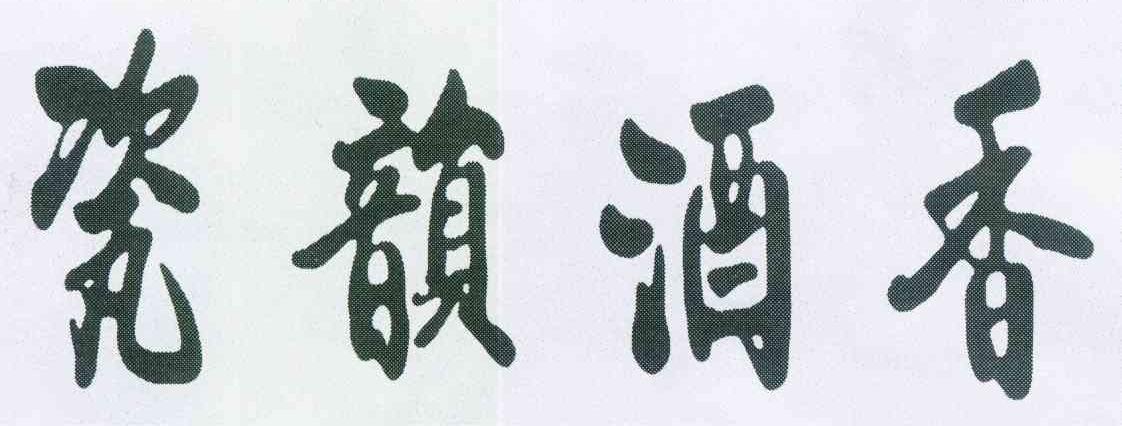 瓷韻酒香